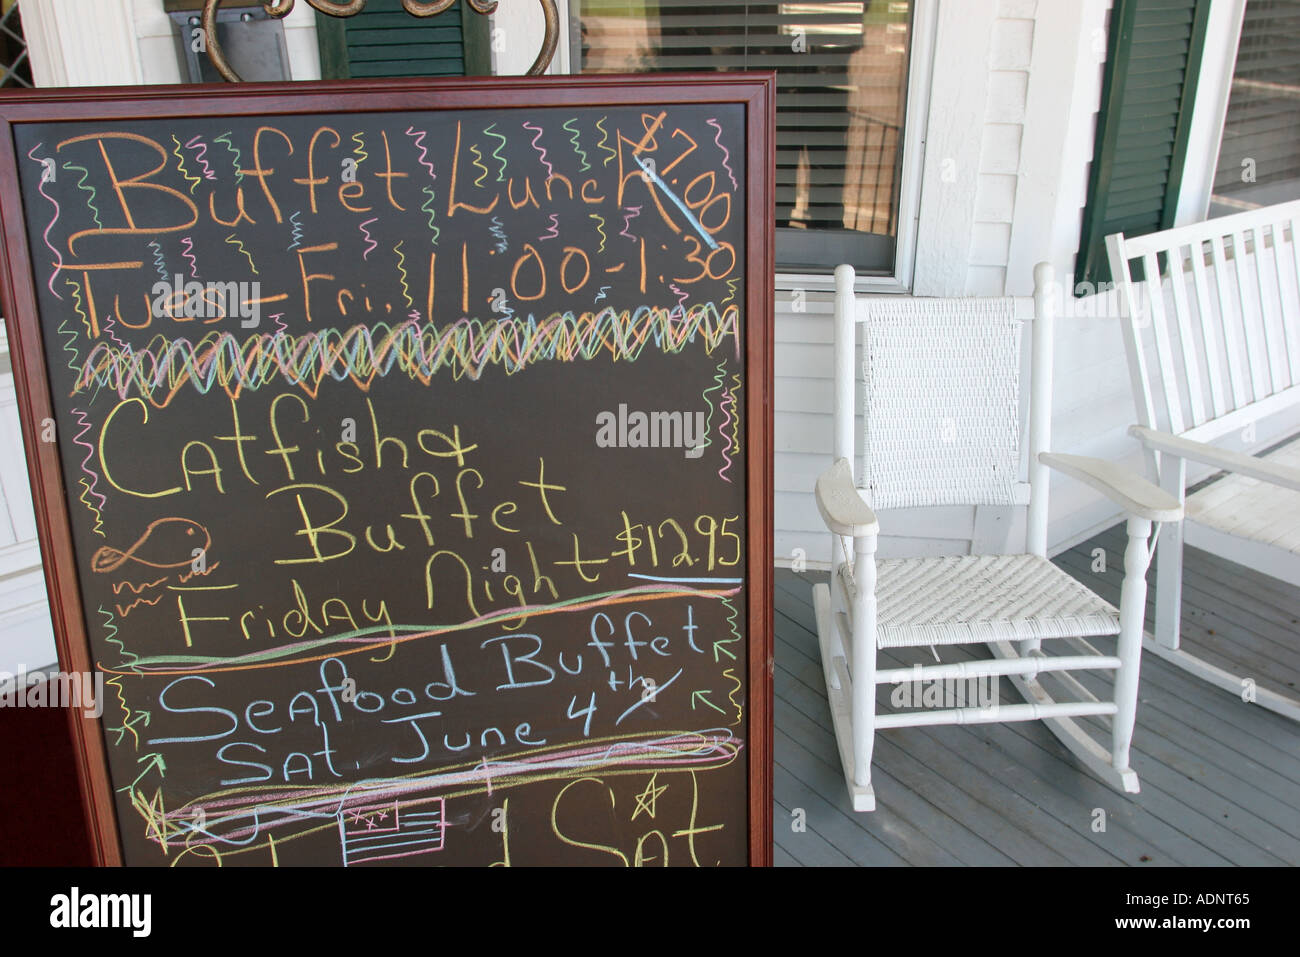 Buffet Lunch $7.00
Tues - Fri. 11:00 - 1:30
Catfish &
Buffet
Friday Night $12.95
Seafood Buffet
Sat. June 4th
Sat.
alamy
alamy stock photo
Image ID: ADNT65
www.alamy.com